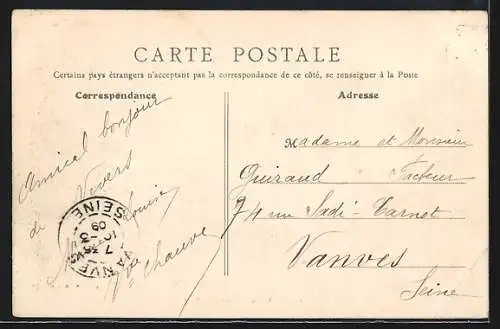 CARTE POSTALE
Certains pays étrangers n'acceptant pas la correspondance de ce côté, se renseigner à la Poste
Correspondance
Amical bonjour
de Nevers
Louise
Vve Chauve
VANVES
7 - 3
09
SEINE
Adresse
Madame et Monsieur
Guiraud Facteur
74 rue Sadi-Carnot
Vanves
Seine